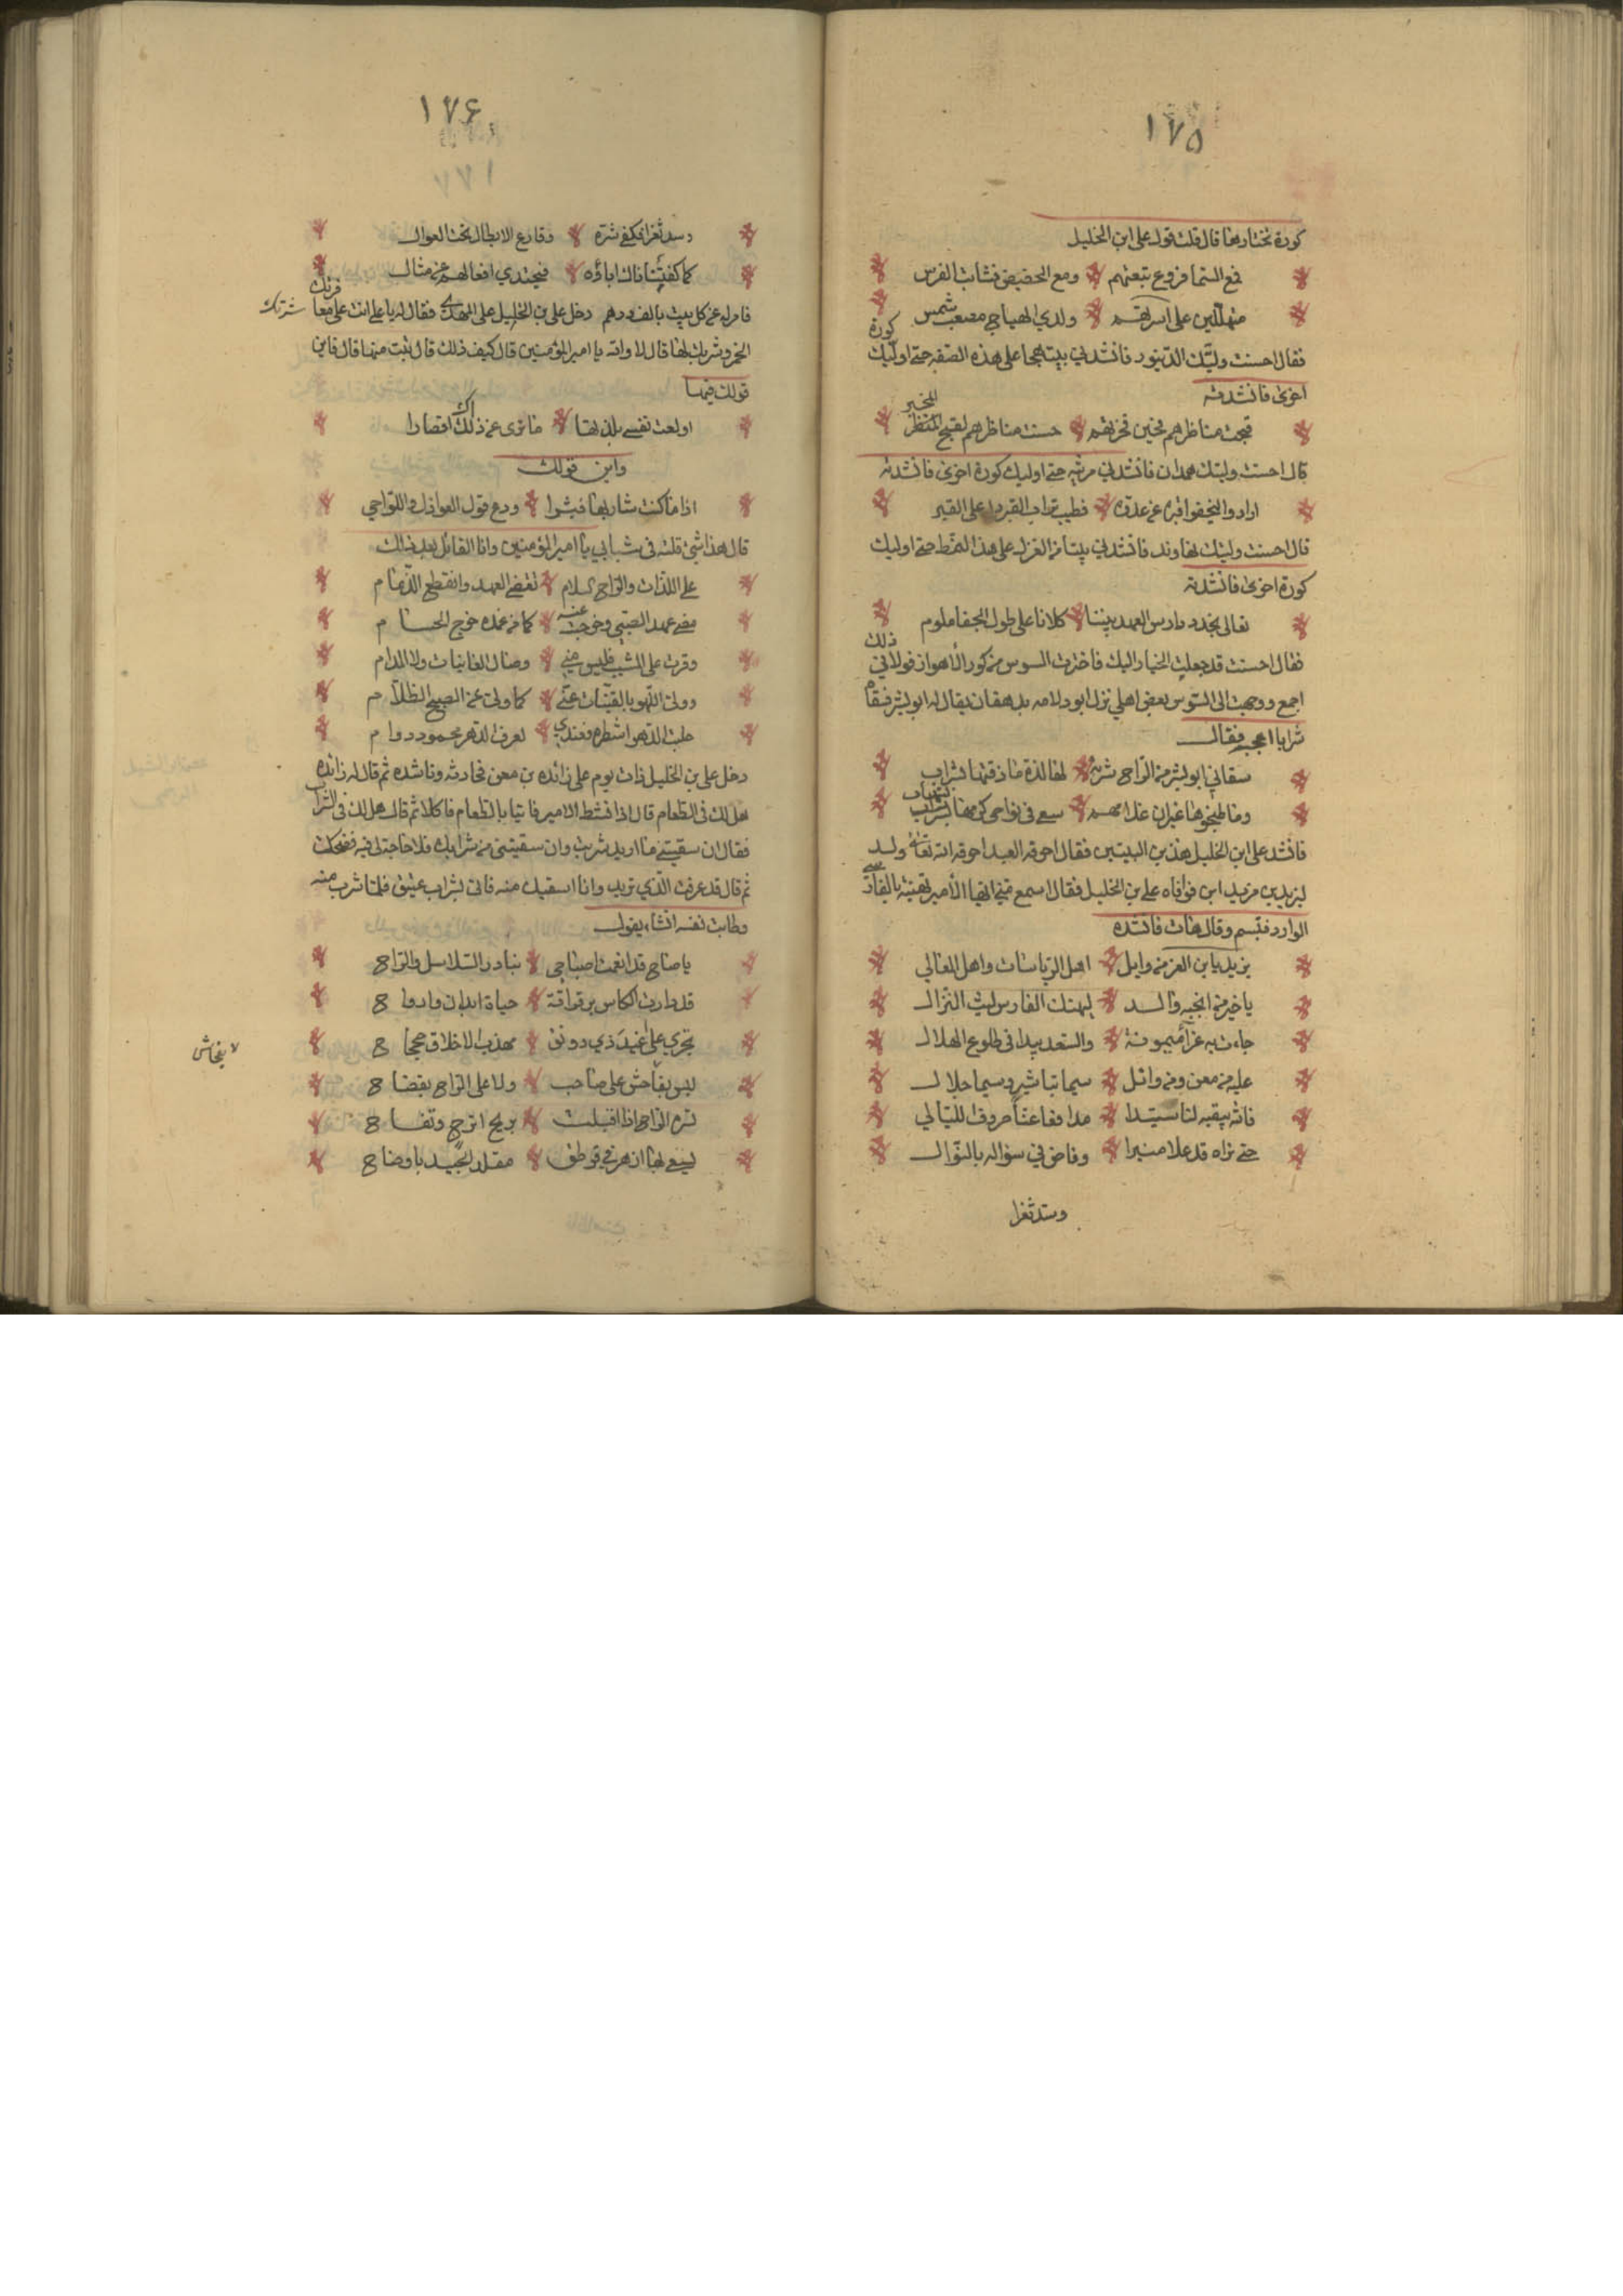 ١٧٥
كورة تختار بها قال قلت قول علي ابن الخليل
فمع السما فروع تبعتهم ومع الحضيض فشات الفرس
متهللين على اسرتهم ولدي الهياج مصعب شمس
فقال احسنت وليتك الدينور فانشدني بيت هجا على هذه الصفه حتى اوليك كورة
اخرى فانشدته
قبحت مناظرهم فحين خبرتهم حسنت مناظرهم لقبح المنظر المخبر
قال احسنت وليتك همدان فانشدني مرثيه حتى اوليك كورة اخرى فانشدته
ارادوا ليخفوا قبره عن عدوه فطيب تراب القبر دل على القبر
قال احسنت وليتك نهاوند فانشدني بيتا من الغزل على هذا النمط حتى اوليك
كورة اخرى فانشدته
تعالى نجدد دارس العهد بيننا كلانا على طول الجفا ملوم
فقال احسنت قد جعلت الخيار اليك فاخترت السوس من كور الأهواز فولاني ذلك
اجمع ووجهت الى السوس بعض اهلي نزل ابو دلامه بدهقان يقال له ابو بشر فسقاه
شرابا اعجبه فقال
سقاني ابو بشر من الراح شربة لها لذة ما ذقتها لشراب
وما طبخوها غير ان غلامهم سعى في نواحي كرمها بشراب بشهاب
فانشد علي ابن الخليل هذين البيتين فقال احرقه العبد احرقه الله تعالى ولد
ليزيد بن مزيد ابن فوافاه علي بن الخليل فقال اسمع مني ايها الأمير تهنية بالفارس
الوارد فتبسم وقال هات فانشده
يزيد يا بن العز من وايل اهل الرياسات واهل المعالي
يا خير من انجبه والد ليهنك الفارس ليث النزال
جاءت به غراء ميمونة والسعد يبدا في طلوع الهلال
عليه من معن ومن وائل سيما تباشير وسيما جلال
فالله يبقيه لنا سيدا مدافعا عنا صروف الليالي
حتى نراه قد علا منبرا وفاض في سؤاله بالنوال
وسد ثغرا
١٧۶
١٧٧
وسد ثغرا فكفى شره وقارع الابطال تحت العوال
كما كفيتنا ذاك اباؤه فيحتذي افعالهم عن مثال
فامر له عن كل بيت بالف درهم دخل علي بن الخليل على المهدي فقال له يا علي انت على معاقرتك شربك
الخمر وشربك لها قال لا والله يا امير المؤمنين قال كيف ذلك قال تبت منها قال فاين
قولك فيها
اولعت نفسي بلذتها ما ترى عن ذلك اقصارا
واين قولك
اذا ما كنت شاربها فسرا ودع قول العواذل واللواحي
قال هذا شئ قلته في شبابي يا امير المؤمنين وانا القائل بعد ذلك
على اللذات والراح السلام تقضى العهد وانقطع الذمام
مضى عهد الصبى وخرجت عنه كما من غمده خرج الحسام
وقرت على المشيب فليس مني وصال الغانيات ولا المدام
وولى اللهو بالقينات عني كما ولى عن الصبح الظلام
حلبت الدهر اشطره فعندي لعرف الدهر محمود دوام
دخل علي بن الخليل ذات يوم على زائده بن معن فحادثه وناشده ثم قال له زائده
هل لك في الطعام قال اذا نشط الامير فاتيا بالطعام فاكلا ثم قال هل لك في الشراب
فقال ان سقيتني ما اريد شربت وان سقيتني من شرابك فلا حاجة لي فيه فضحك
ثم قال قد عرفت الذي تريد وانا اسقيك منه فاتى بشراب عتيق فلما شرب منه
وطابت نفسه انشاء يقول
يا صاح قد انعمت اصباحي ببارد السلاسل والراح
قد دارت الكاس برقراقة حياة ابدان وارواح
تجري على اغيد ذي رونق مهذب الاخلاق جحجاح
ليس بفاحش على صاحب ولا على الراح بفضاح
لا بفحاش
تسره الراح اذا اقبلت بريح اترج وتفاح
يسعى بها ازهر في قرطق مقلد الجيد باوضاح